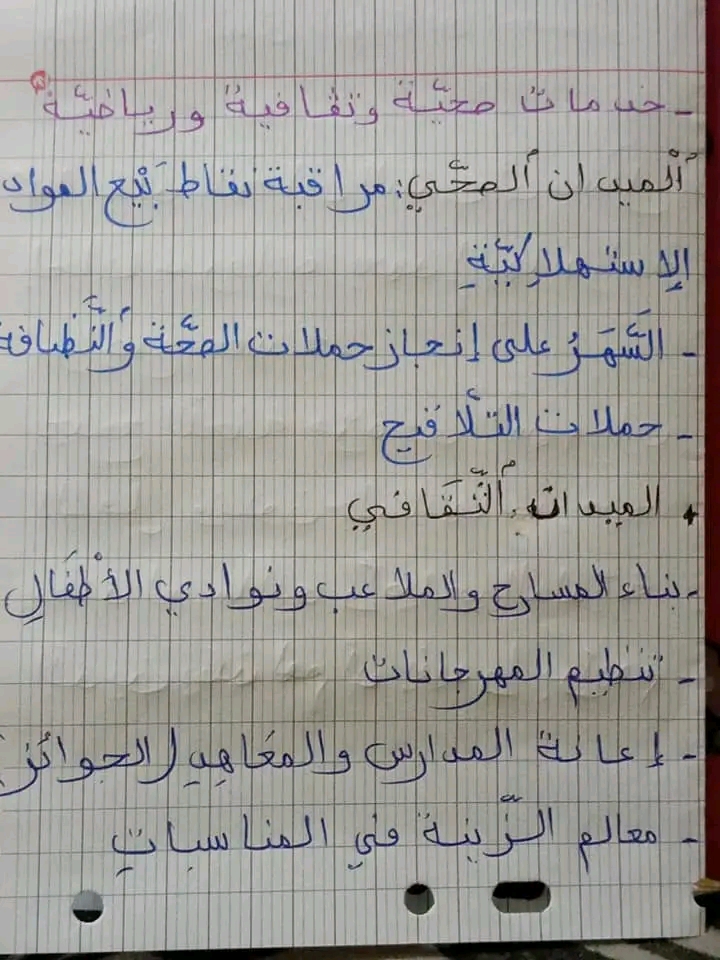 - خدمات صحيّة وثقافية ورياضيّة
ألْميدان ألصحّي: مراقبة نقاط بَيْع المواد
الإستهلاكيّةِ
- السَّهَرُ على إنجاز حملات الصحّة وألنَّظافة
- حملات التلّاقيح
• الميدان ألثَّقَافي
- بناء المسارح والملاعب ونوادي الأطْفَالِ
- تنظيم المهرجانات
- إعانة المدارس والمعَاهِدِ (الجوائز)
- معالم الزّينة في المناسباتِ